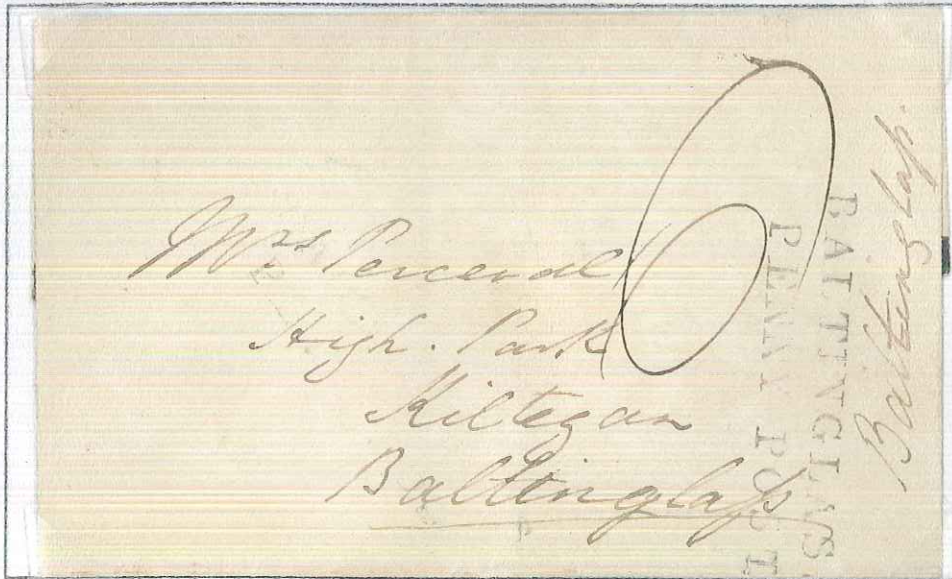 Mrs Perceval
High. Park
Kiltegan
Baltinglaſs
BALTINGLASS
PENNY POST
Baltinglaſs.